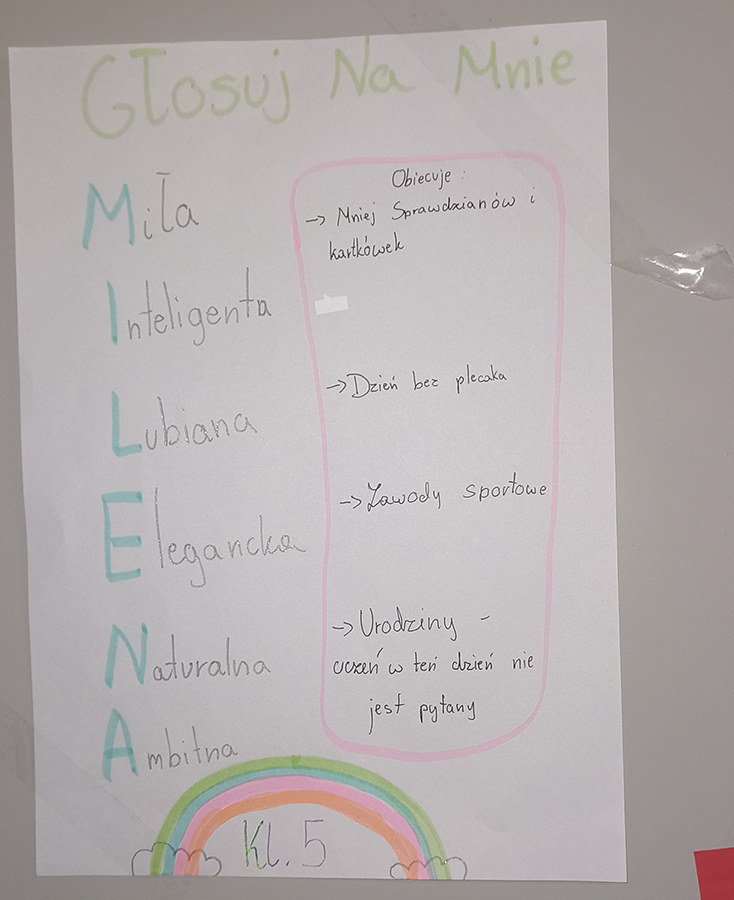 Głosuj Na Mnie
Miła
Inteligenta
Lubiana
Elegancka
Naturalna
Ambitna
Obiecuje :
→ Mniej Sprawdzianów i
kartkówek
→ Dzień bez plecaka
→ Zawody sportowe
→ Urodziny -
uczeń w teń dzień nie
jest pytany
Kl. 5